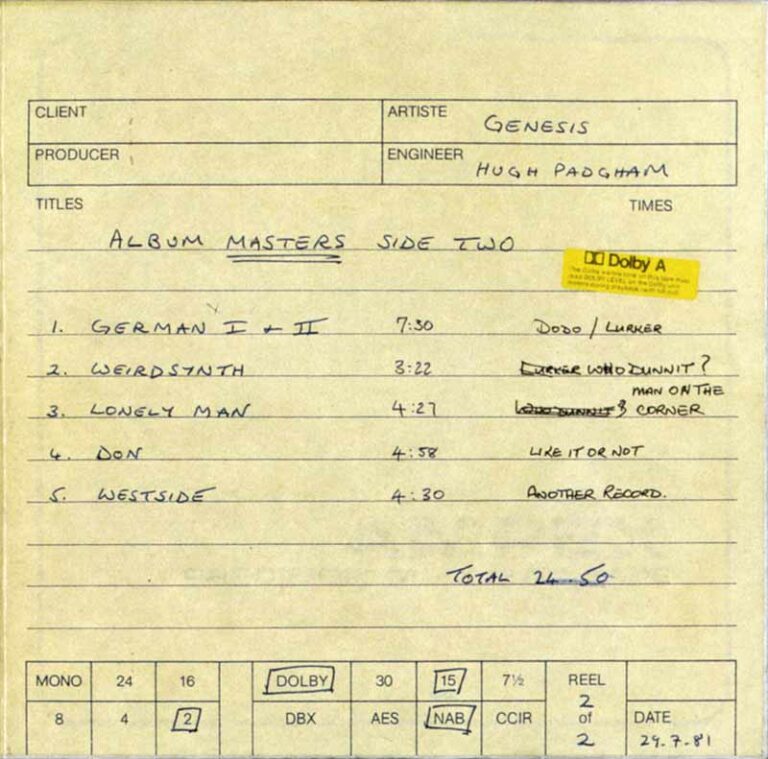 CLIENT ARTISTE GENESIS
PRODUCER ENGINEER HUGH PADGHAM
TITLES TIMES
ALBUM MASTERS SIDE TWO
Dolby A
1. GERMAN I + II 7:30 DODO / LURKER
2. WEIRDSYNTH 3:22 LURKER WHO DUNNIT?
MAN ON THE
3. LONELY MAN 4:27 WHO DUNNIT? CORNER
4. DON 4:58 LIKE IT OR NOT
5. WESTSIDE 4:30 ANOTHER RECORD.
TOTAL 24.50
MONO 24 16 DOLBY 30 15 7½ REEL
8 4 2 DBX AES NAB CCIR 2 of 2 DATE 29.7.81